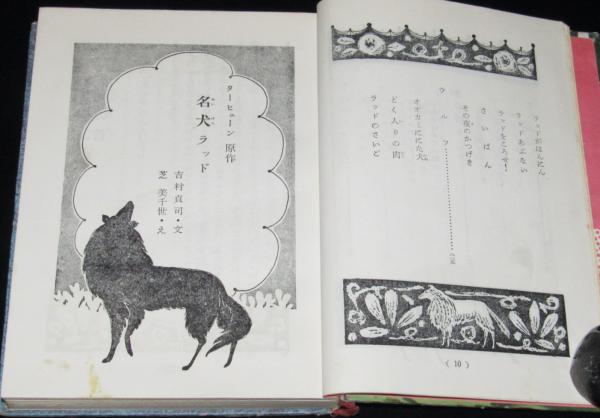 ラッドがはんにん
ラッドあぶない
ラッドをころせ!
さいばん
その夜のかつげき
ウルフ
オオカミににた犬
どく入りの肉
ラッドのさいど
(10)
ターヒューン 原作
名犬ラッド
めい けん
吉村貞司・文
芝 美千世・え